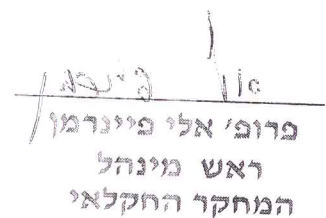 פרופ׳ אלי פיינרמן
ראש מינהל
המחקר החקלאי